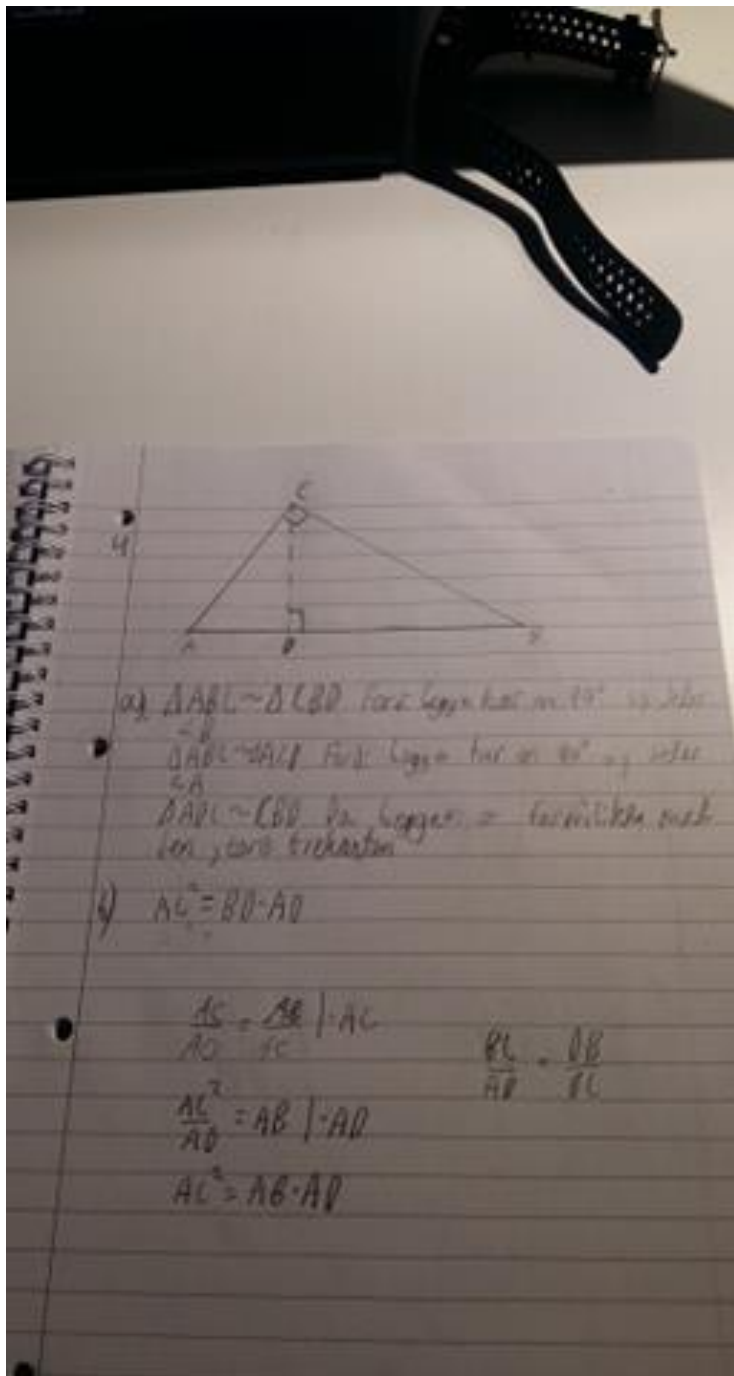 C
4
A D B
a) ΔABC ~ ΔCBD Fordi begge har en 90° og deler
<B
ΔABC ~ ΔACD Fordi begge har en 90° og deler
<A
ΔADC ~ CBD Da begge er formlike med
den store trekanten
b) AC² = BD·AD
AC/AD = AB/AC |·AC
BC/AB = DB/BC
AC²/AD = AB |·AD
AC² = AB·AD